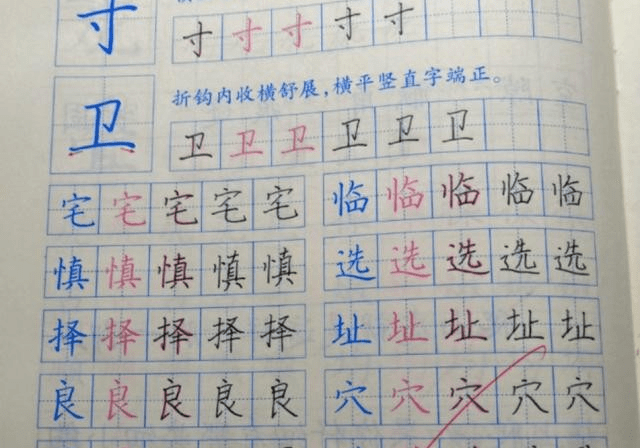 寸 寸 寸 寸 寸 寸
折钩内收横舒展,横平竖直字端正。
卫 卫 卫 卫 卫 卫 卫
宅 宅 宅 宅 宅 临 临 临 临 临
慎 慎 慎 慎 慎 选 选 选 选 选
择 择 择 择 择 址 址 址 址 址
良 良 良 良 良 穴 穴 穴 穴 穴